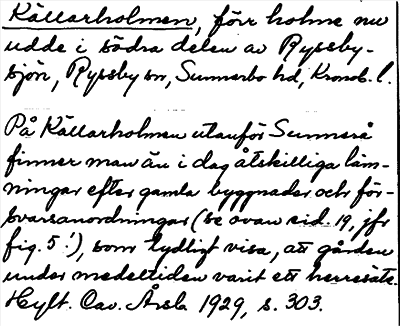 Källarholmen, förr holme nu
udde i södra delen av Ryssby-
sjön, Ryssby sn, Sunnerbo hd, Kronob. l.
På Källarholmen utanför Sunnerå
finner man än i dag åtskilliga läm-
ningar efter gamla byggnader och för-
svarsanordningar (se ovan sid. 19, jfr
fig. 5!), som tydligt visa, att gården
under medeltiden varit ett herresäte.
Hylt. Cav. Årsb 1929, s. 303.